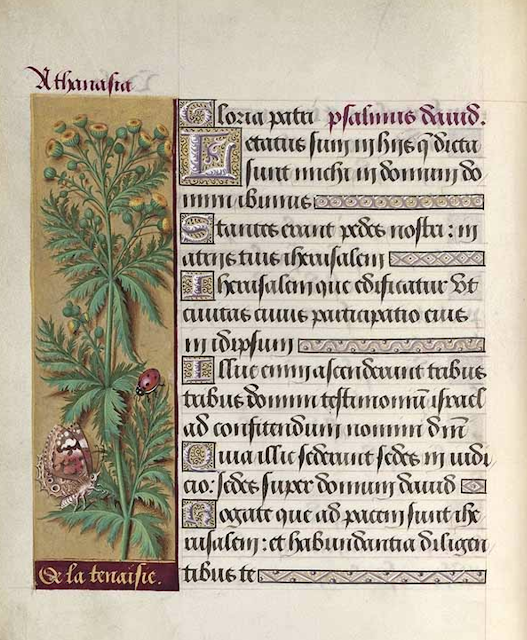 Athanasia
Gloria patri psalmus david.
Letatus sum in hiis q̃ dicta
sunt michi in domum do
mini ibimus
Stantes erant pedes nostri : in
atriis tuis iherusalem
Iherusalem que edificatur Vt
ciuitas cuius participatio eius
in idipsum
Illuc enim ascenderunt tribus
tribus domini testimoniũ israel
ad confitendum nomini dñi
Quia illic sederunt sedes in iudi
cio : sedes super domum david
Rogate que ad pacem sunt ihe
rusalem : et habundantia diligen
tibus te
De la tenaisie.